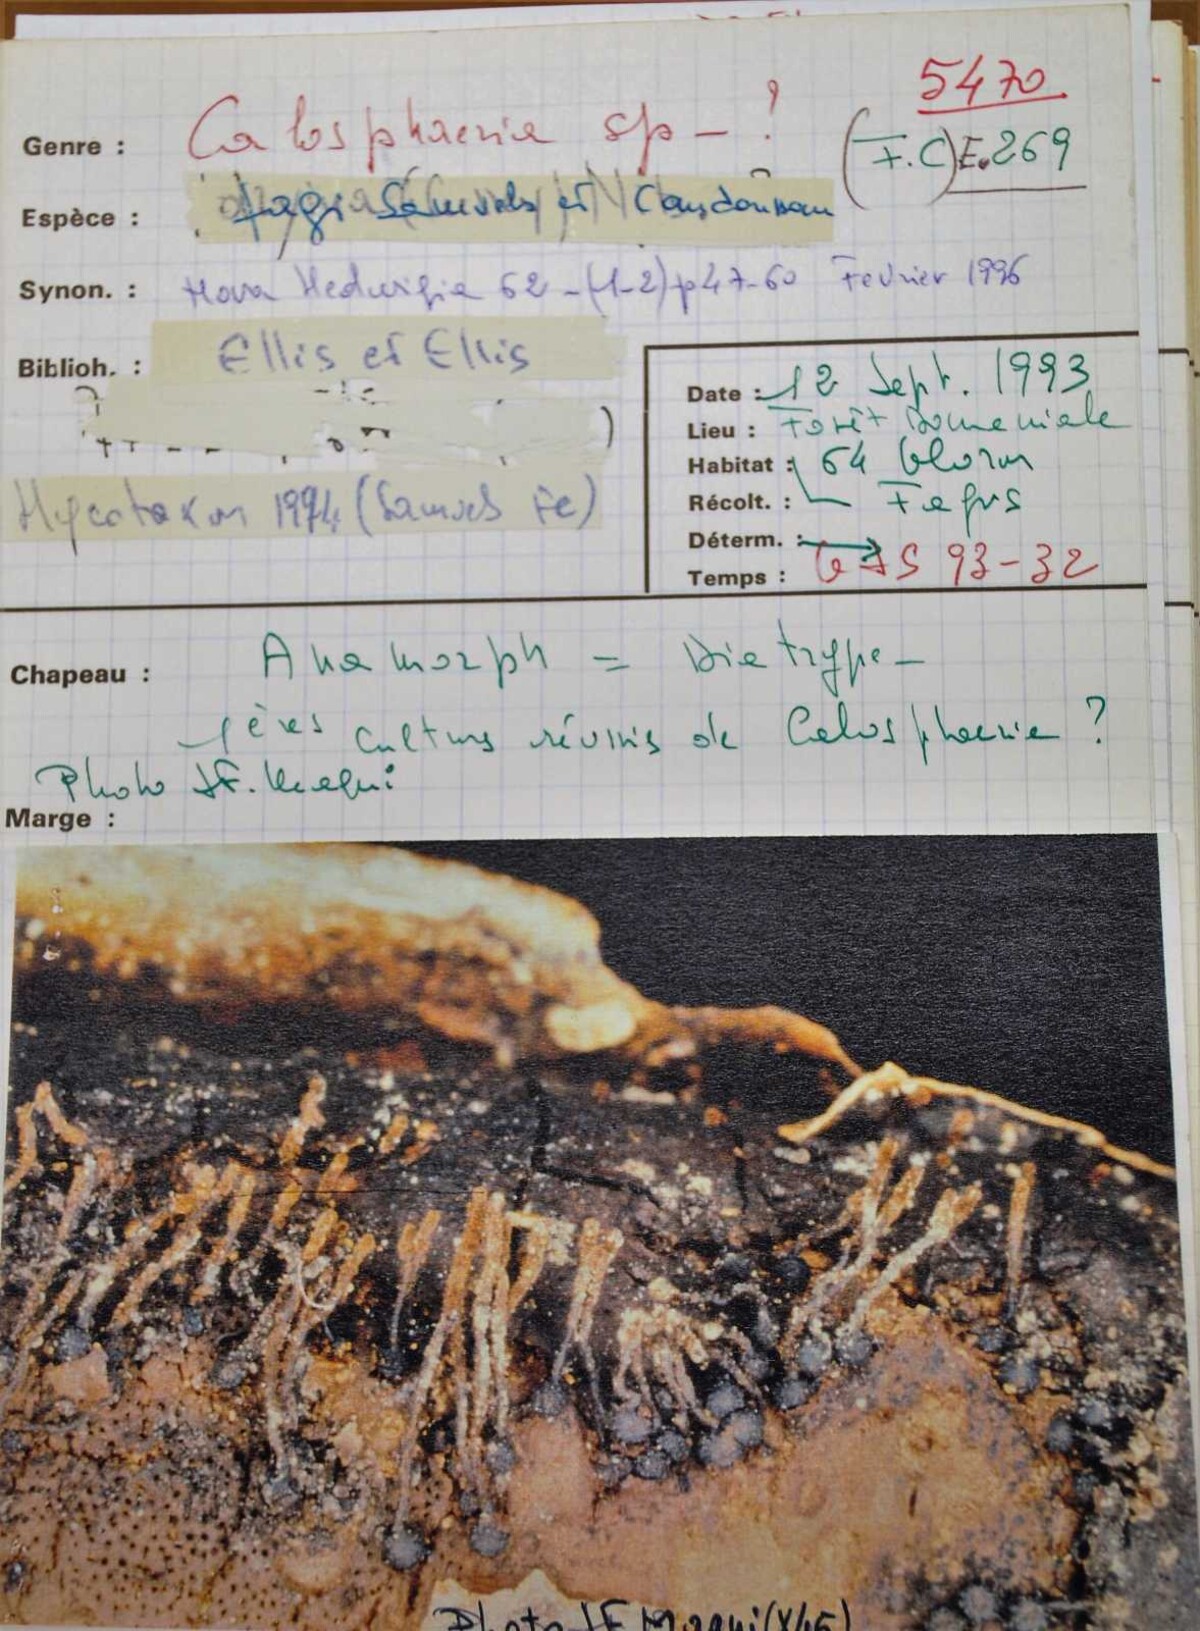 5470
Genre : Calosphaeria sp - ?
(F.C) E.269
Espèce : fagi Samuels et Candoussau
Synon. : Nova Hedwigia 62-(1-2) p 47-60 Fevrier 1996
Biblioh. : Ellis et Ellis
Mycotaxon 1994 (Samuels Fe)
Date : 12 Sept. 1993
Lieu : Forêt Domaniale
Habitat : 64 Oloron
Récolt. : Fagus
Déterm. :
Temps : GJS 93-32
Chapeau : Anamorph = Diatrype -
1ères cultures réussis de Calosphaeria ?
Photo JF. Magni
Marge :
Photo JF Magni (X45)